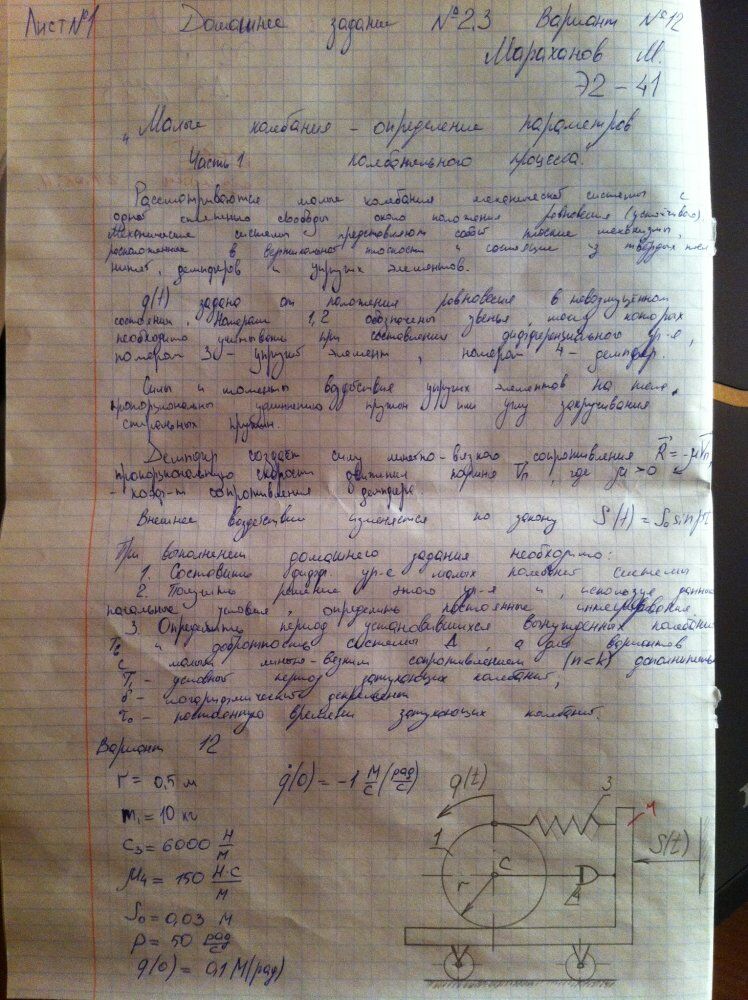 Лист №1 Домашнее задание №2,3 Вариант №12
Мараханов М.
Э2-41
„Малые колебания – определение параметров
Часть 1 колебательного процесса"
Рассматриваются малые колебания механической системы с
одной степенью свободы около положения равновесия (устойчивого).
Механические системы представляют собой плоские механизмы,
расположенные в вертикальной плоскости и состоящие из твердых тел
нитей, демпферов и упругих элементов.
q(t) задано от положения равновесия в невозмущенном
состоянии. Номерами 1,2 обозначены звенья, массы которых
необходимо учитывать при составлении дифференциального ур-я,
номером 3 – упругий элемент, номером 4 – демпфер.
Силы и моменты воздействия упругих элементов на тела
пропорциональны удлинению пружин или углу закручивания
спиральных пружин.
Демпфер создаёт силу линейно-вязкого сопротивления R = -μVп,
пропорциональную скорости движения поршня Vп, где μ > 0
- коэф-т сопротивления демпфера.
Внешнее воздействие изменяется по закону S(t) = S₀ sin pt
При выполнении домашнего задания необходимо:
1. Составить дифф. ур-е малых колебаний системы
2. Получить решение этого ур-я и, используя данные
начальные условия, определить постоянные интегрирования.
3. Определить период установившихся вынужденных колебаний
Tв и добротность системы Д, а для вариантов
с малым линейно-вязким сопротивлением (n<k) дополнительно
T₁ – условный период затухающих колебаний,
δ – логарифмический декремент
τ₀ – постоянную времени затухающих колебаний.
Вариант 12
r = 0,5 м q̇(0) = -1 м/с (рад/с)
m₁ = 10 кг
C₃ = 6000 Н/м
μ₄ = 150 Н·с/м
S₀ = 0,03 м
p = 50 рад/с
q(0) = 0,1 м(рад)
q(t) 3
1 4 S(t)
C
r 4